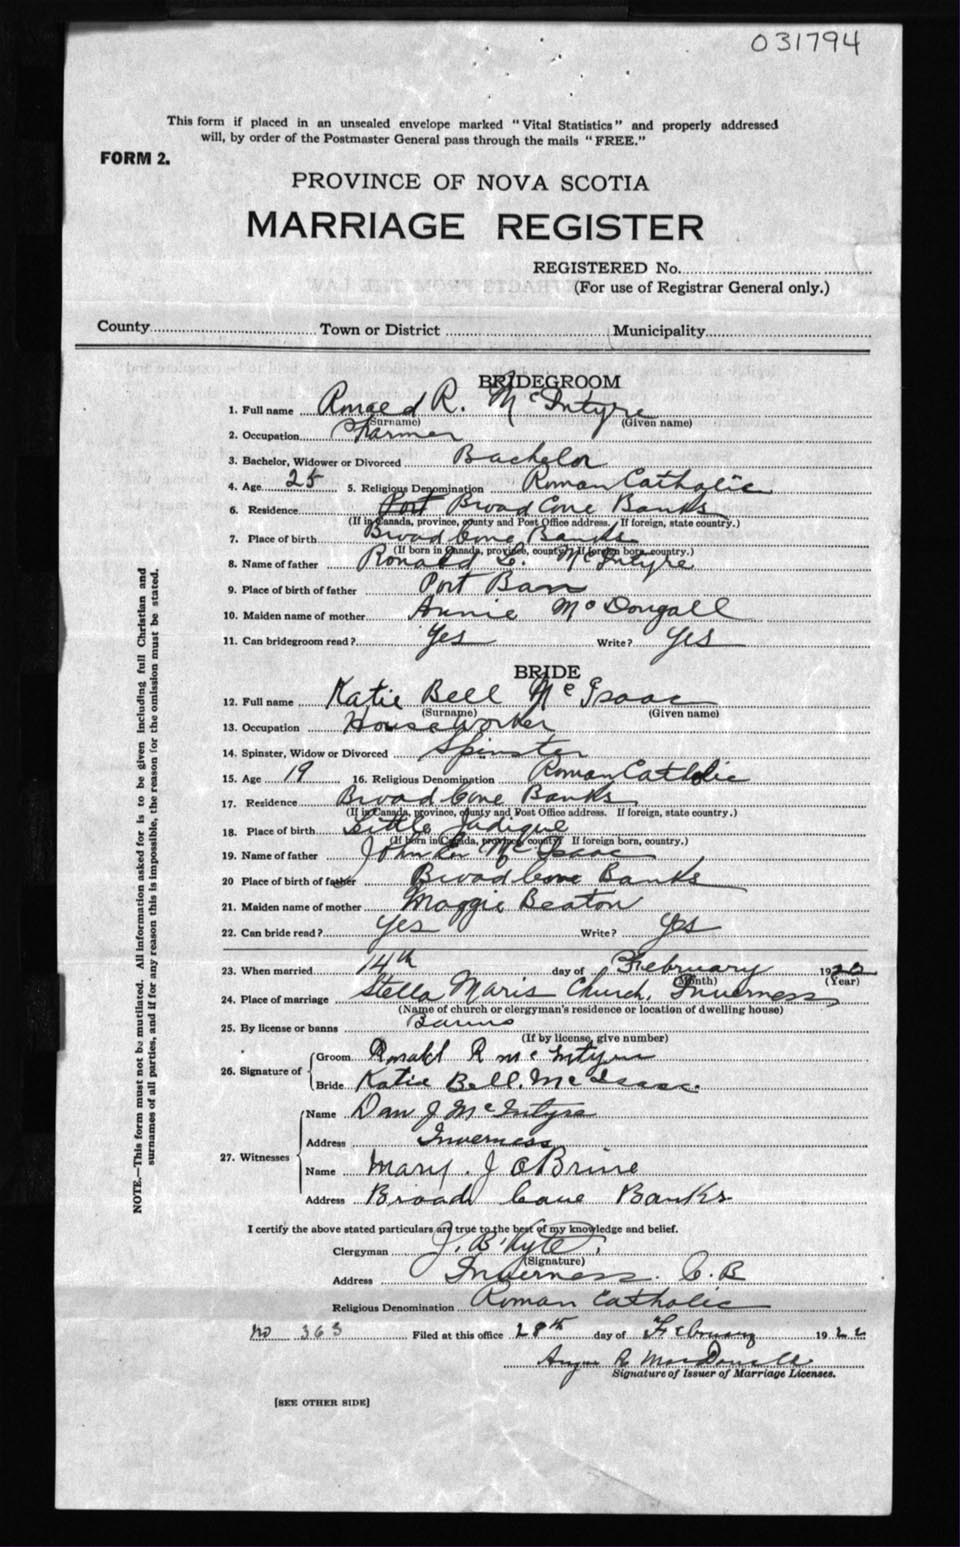 031794
This form if placed in an unsealed envelope marked "Vital Statistics" and properly addressed
will, by order of the Postmaster General pass through the mails "FREE."
FORM 2.
PROVINCE OF NOVA SCOTIA
MARRIAGE REGISTER
REGISTERED No.
(For use of Registrar General only.)
County Town or District Municipality
BRIDEGROOM
1. Full name Ronald R. McIntyre
(Surname) (Given name)
2. Occupation Farmer
3. Bachelor, Widower or Divorced Bachelor
4. Age 25 5. Religious Denomination Roman Catholic
6. Residence Port Broad Cove Banks
(If in Canada, province, county and Post Office address. If foreign, state country.)
7. Place of birth Broad Cove Banks
(If born in Canada, province, county. If foreign born, country.)
8. Name of father Ronald L. McIntyre
9. Place of birth of father Port Ban
10. Maiden name of mother Annie McDougall
11. Can bridegroom read? Yes Write? Yes
BRIDE
12. Full name Katie Bell McIsaac
(Surname) (Given name)
13. Occupation Houseworker
14. Spinster, Widow or Divorced Spinster
15. Age 19 16. Religious Denomination Roman Catholic
17. Residence Broad Cove Banks
(If in Canada, province, county and Post Office address. If foreign, state country.)
18. Place of birth Little Judique
(If born in Canada, province county. If foreign born, country.)
19. Name of father John McIsaac
20 Place of birth of father Broad Cove Banks
21. Maiden name of mother Maggie Beaton
22. Can bride read? Yes Write? Yes
23. When married 14th day of February 1922
(Month) (Year)
24. Place of marriage Stella Maris Church, Inverness
(Name of church or clergyman's residence or location of dwelling house)
25. By license or banns Banns
(If by license, give number)
26. Signature of Groom Ronald R McIntyre
Bride Katie Bell. McIsaac.
27. Witnesses Name Dan J McIntyre
Address Inverness
Name Mary. J OBrine
Address Broad Cove Banks
I certify the above stated particulars are true to the best of my knowledge and belief.
Clergyman J. B. Kyte
(Signature)
Address Inverness. C.B
Religious Denomination Roman Catholic
No 363 Filed at this office 28th day of February 1922
Angus R MacDonald
Signature of Issuer of Marriage Licenses.
[SEE OTHER SIDE]
NOTE.—This form must not be mutilated. All information asked for is to be given including full Christian and
surnames of all parties, and if for any reason this is impossible, the reason for the omission must be stated.